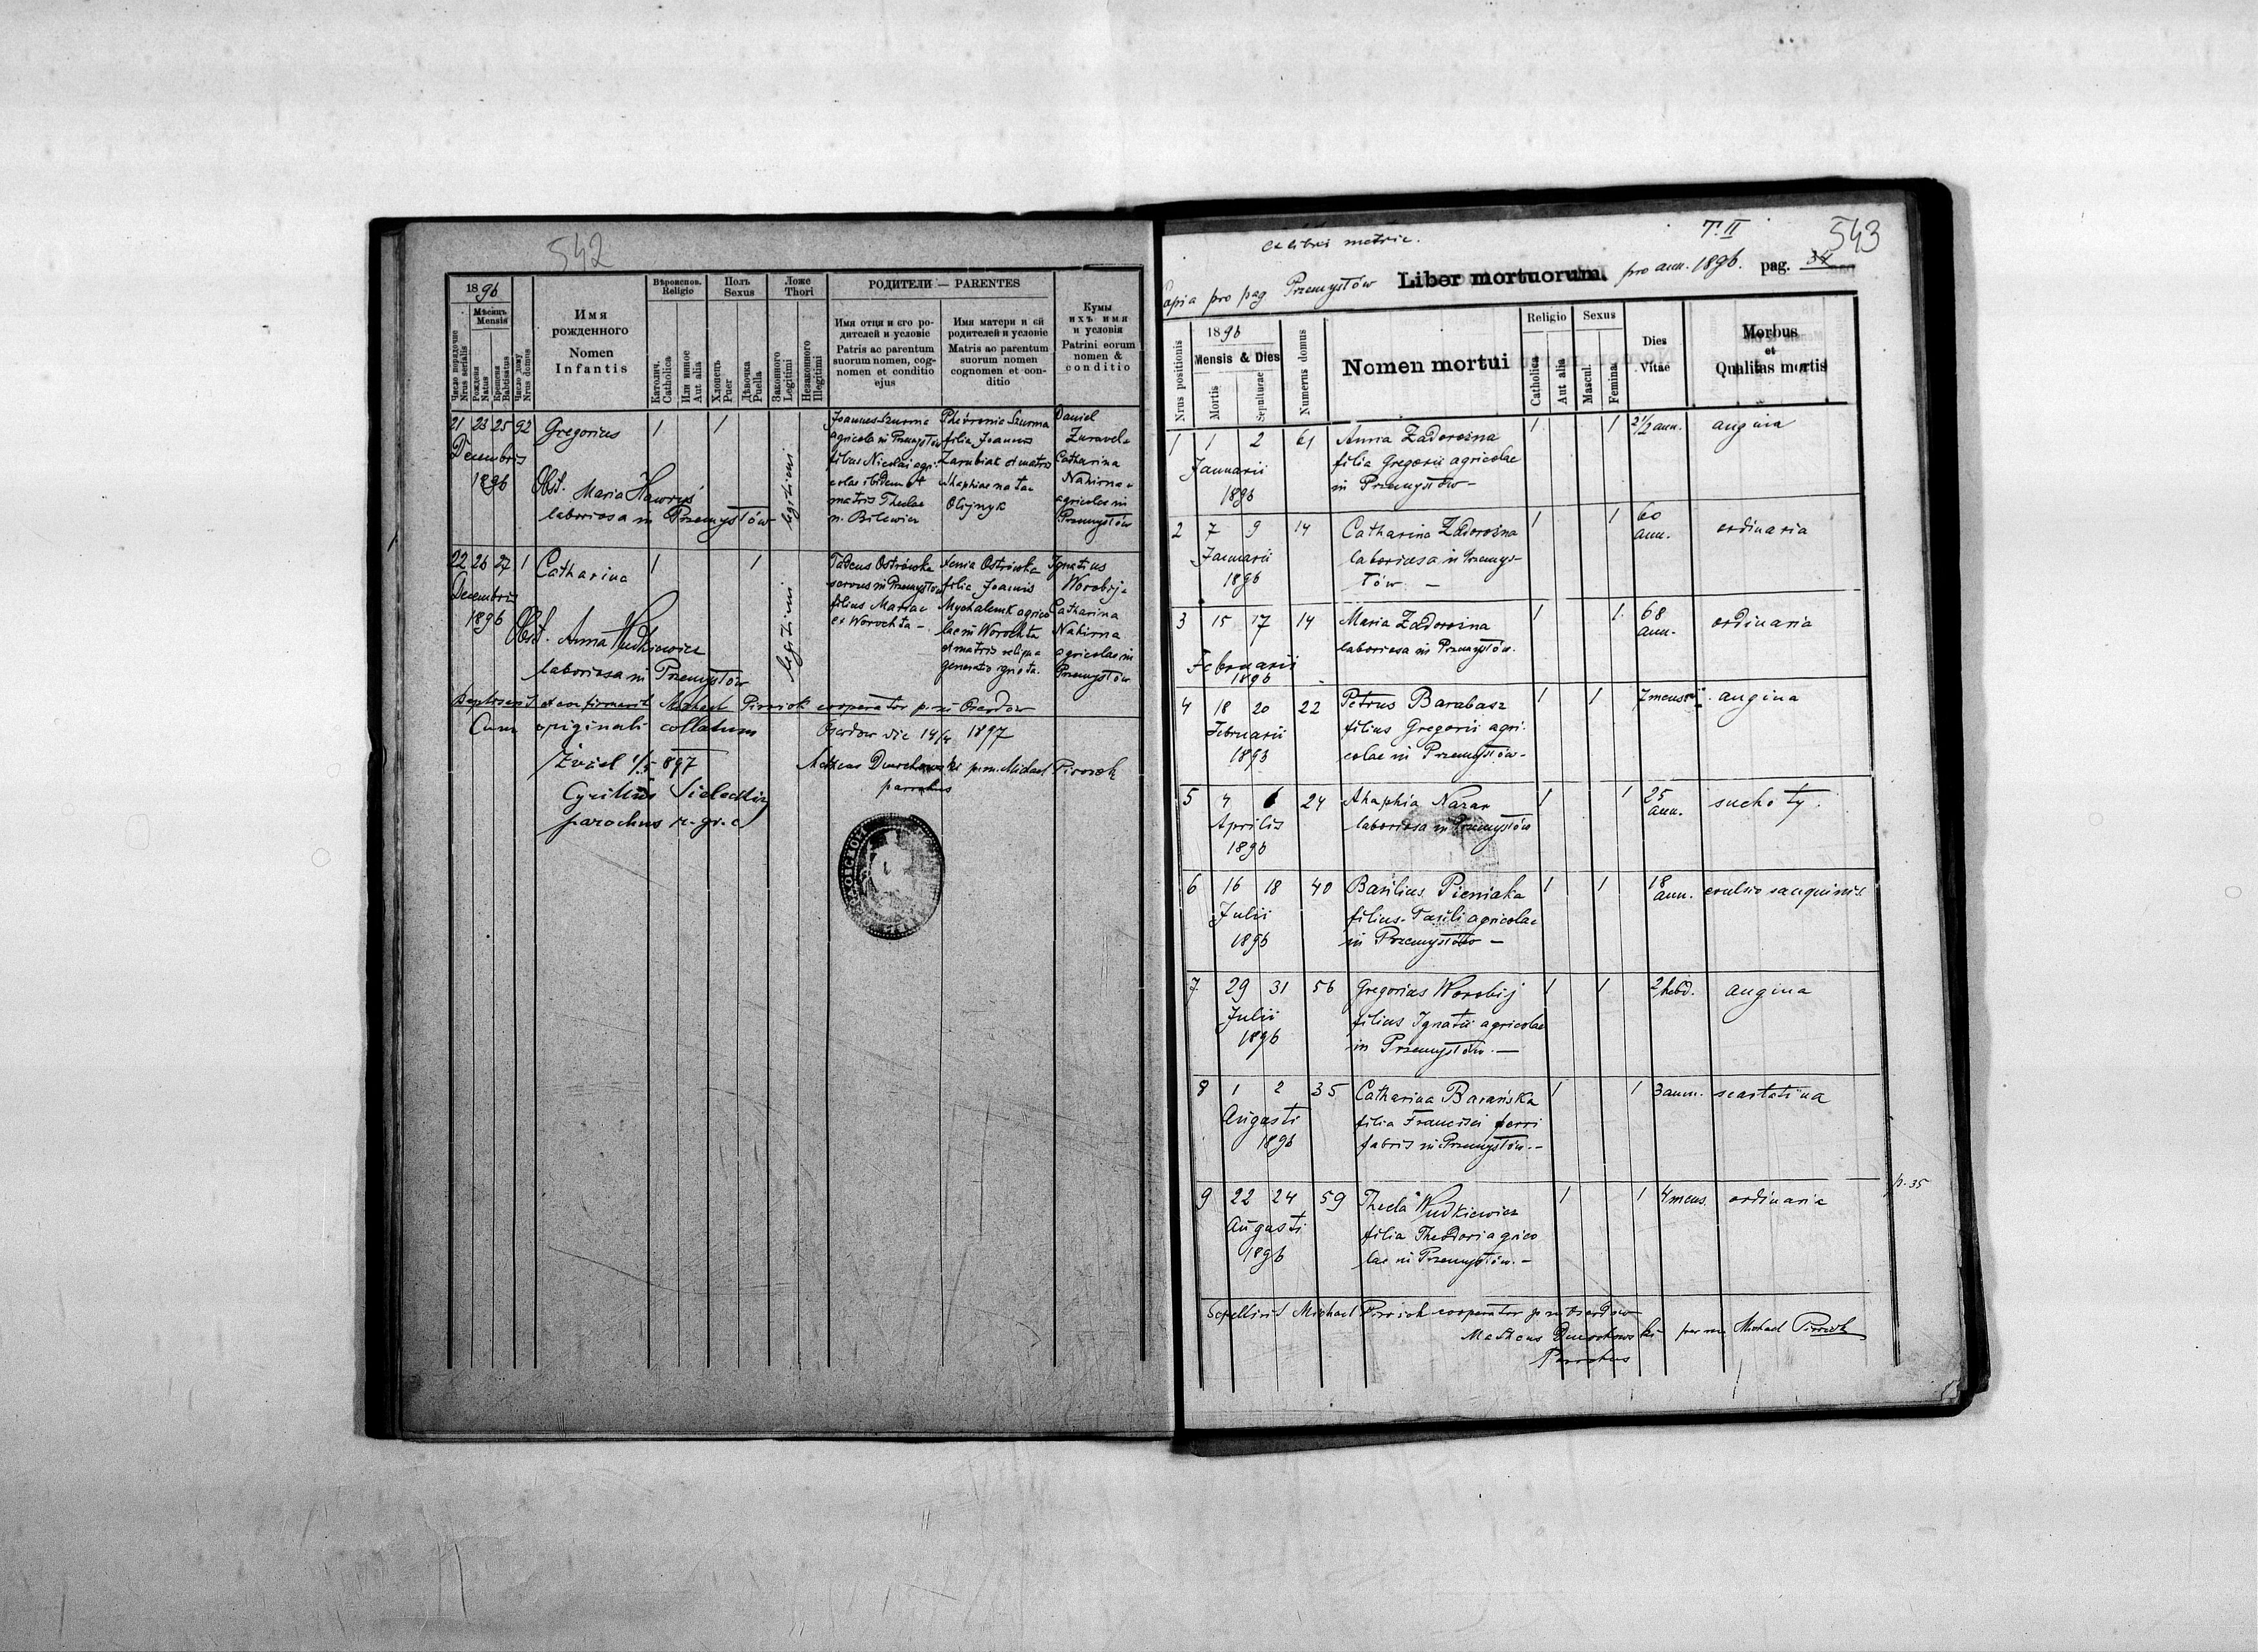 542
1896
Мѣсяцъ
Mensis
Число порядочне
Nrus serialis
Рождена
Natus
Крещена
Babtisatus
Число дому
Nrus domus
Имя
рожденного
Nomen
Infantis
Вѣроиспов.
Religio
Католич.
Catholica
Или инное
Aut alia
Полъ
Sexus
Хлопецъ
Puer
Дѣвочка
Puella
Ложе
Thori
Законного
Legitimi
Незаконного
Illegitimi
РОДИТЕЛИ — PARENTES
Имя отця и єго ро-
дителей и условіе
Patris ac parentum
suorum nomen, cog-
nomen et conditio
ejus
Имя матери и єй
родителей и условіе
Matris ac parentum
suorum nomen
cognomen et con-
ditio
Кумы
ихъ имя
и условія
Patrini eorum
nomen &
conditio
21 23 25 92
Decembris
1896
Gregorius
Obst. Maria Hawryś
laboriosa in Przemysłów
1 1
legitimi
Joannes Szurma
agricola in Przemysłów
filius Nicolai agri-
colae ibidem et
matris Theclae
n. Bilewicz
Phevronia Szurma
filia Joannis
Zarubiak et matris
Ahaphiae nata
Olijnyk
Daniel
Zuravel
Catharina
Nahirna
agricolae in
Przemysłów
22 26 27 1
Decembris
1896
Catharina
Obst. Anna Wudkiewicz
laboriosa in Przemysłów
1 1
legitimi
Tadeus Ostrówka
servus in Przemysłów
filius Mariae
ex Worochta -
Xenia Ostrówka
filia Joannis
Mychalcuk agrico
lae in Worochta
et matris
generatio ignota.
Ignatius
Worobij
Catharina
Nahirna
agricolae in
Przemysłów
Baptisavit et confirmavit Michael Pirozok cooperator p. ni Oserdow
Cum originali collatum
Oserdow die 14/4 1897
Żniel 1/5 897
Cyrillus Sielecki
parochus r. gr. c
Matheus Dwochowski p. m. Michael Pirozok
parochus
ex libris metric.
T. II
543
Copia pro pag Przemysłów Liber mortuorum. pro ann. 1896. pag. 34
Nrus positionis
1896
Mensis & Dies
Mortis
Sepulturae
Numerus domus
Nomen mortui
Religio
Catholica
Aut alia
Sexus
Mascul.
Femina
Dies
Vitae
Morbus
et
Qualitas mortis
1 1 2 61 Anna Zadorożna 1 1 2 1/2 ann. angina
Januarii filia Gregorii agricolae
1896 in Przemysłów -
2 7 9 14 Catharina Zadorożna 1 1 60 ann. ordinaria
Januarii laboriosa in Przemys-
1896 łów. -
3 15 17 14 Maria Zadorożna 1 1 68 ann. ordinaria
Februarii laboriosa in Przemysłów.
1896
4 18 20 22 Petrus Barabasz 1 1 7 mens. angina
Februarii filius Gregorii agri-
1893 colae in Przemysłów -
5 4 6 24 Ahaphia Nazar 1 1 25 ann. suchoty.
Aprilis laboriosa in Przemysłów
1896
6 16 18 40 Basilius Pieniaka 1 1 18 ann. sanguinis.
Julii filius Basili agricolae
1896 in Przemysłów -
7 29 31 56 Gregorius Worobij 1 1 2 hebd. angina
Julii filius Ignatii agricolae
1896 in Przemysłów. -
8 1 2 35 Catharina Barańska 1 1 3 ann. scarlatina
Augusti filia Francisci ferri
1896 fabris in Przemysłów. -
9 22 24 59 Thecla Wudkiewicz 1 1 4 mens. ordinaria
Augusti filia Theodori agrico
1896 lae in Przemysłów. -
p. 35
Sepellivit Michael Pirozok cooperator p. ni Oserdow
Matheus Dwochowski per m. Michael Pirozok
Parochus